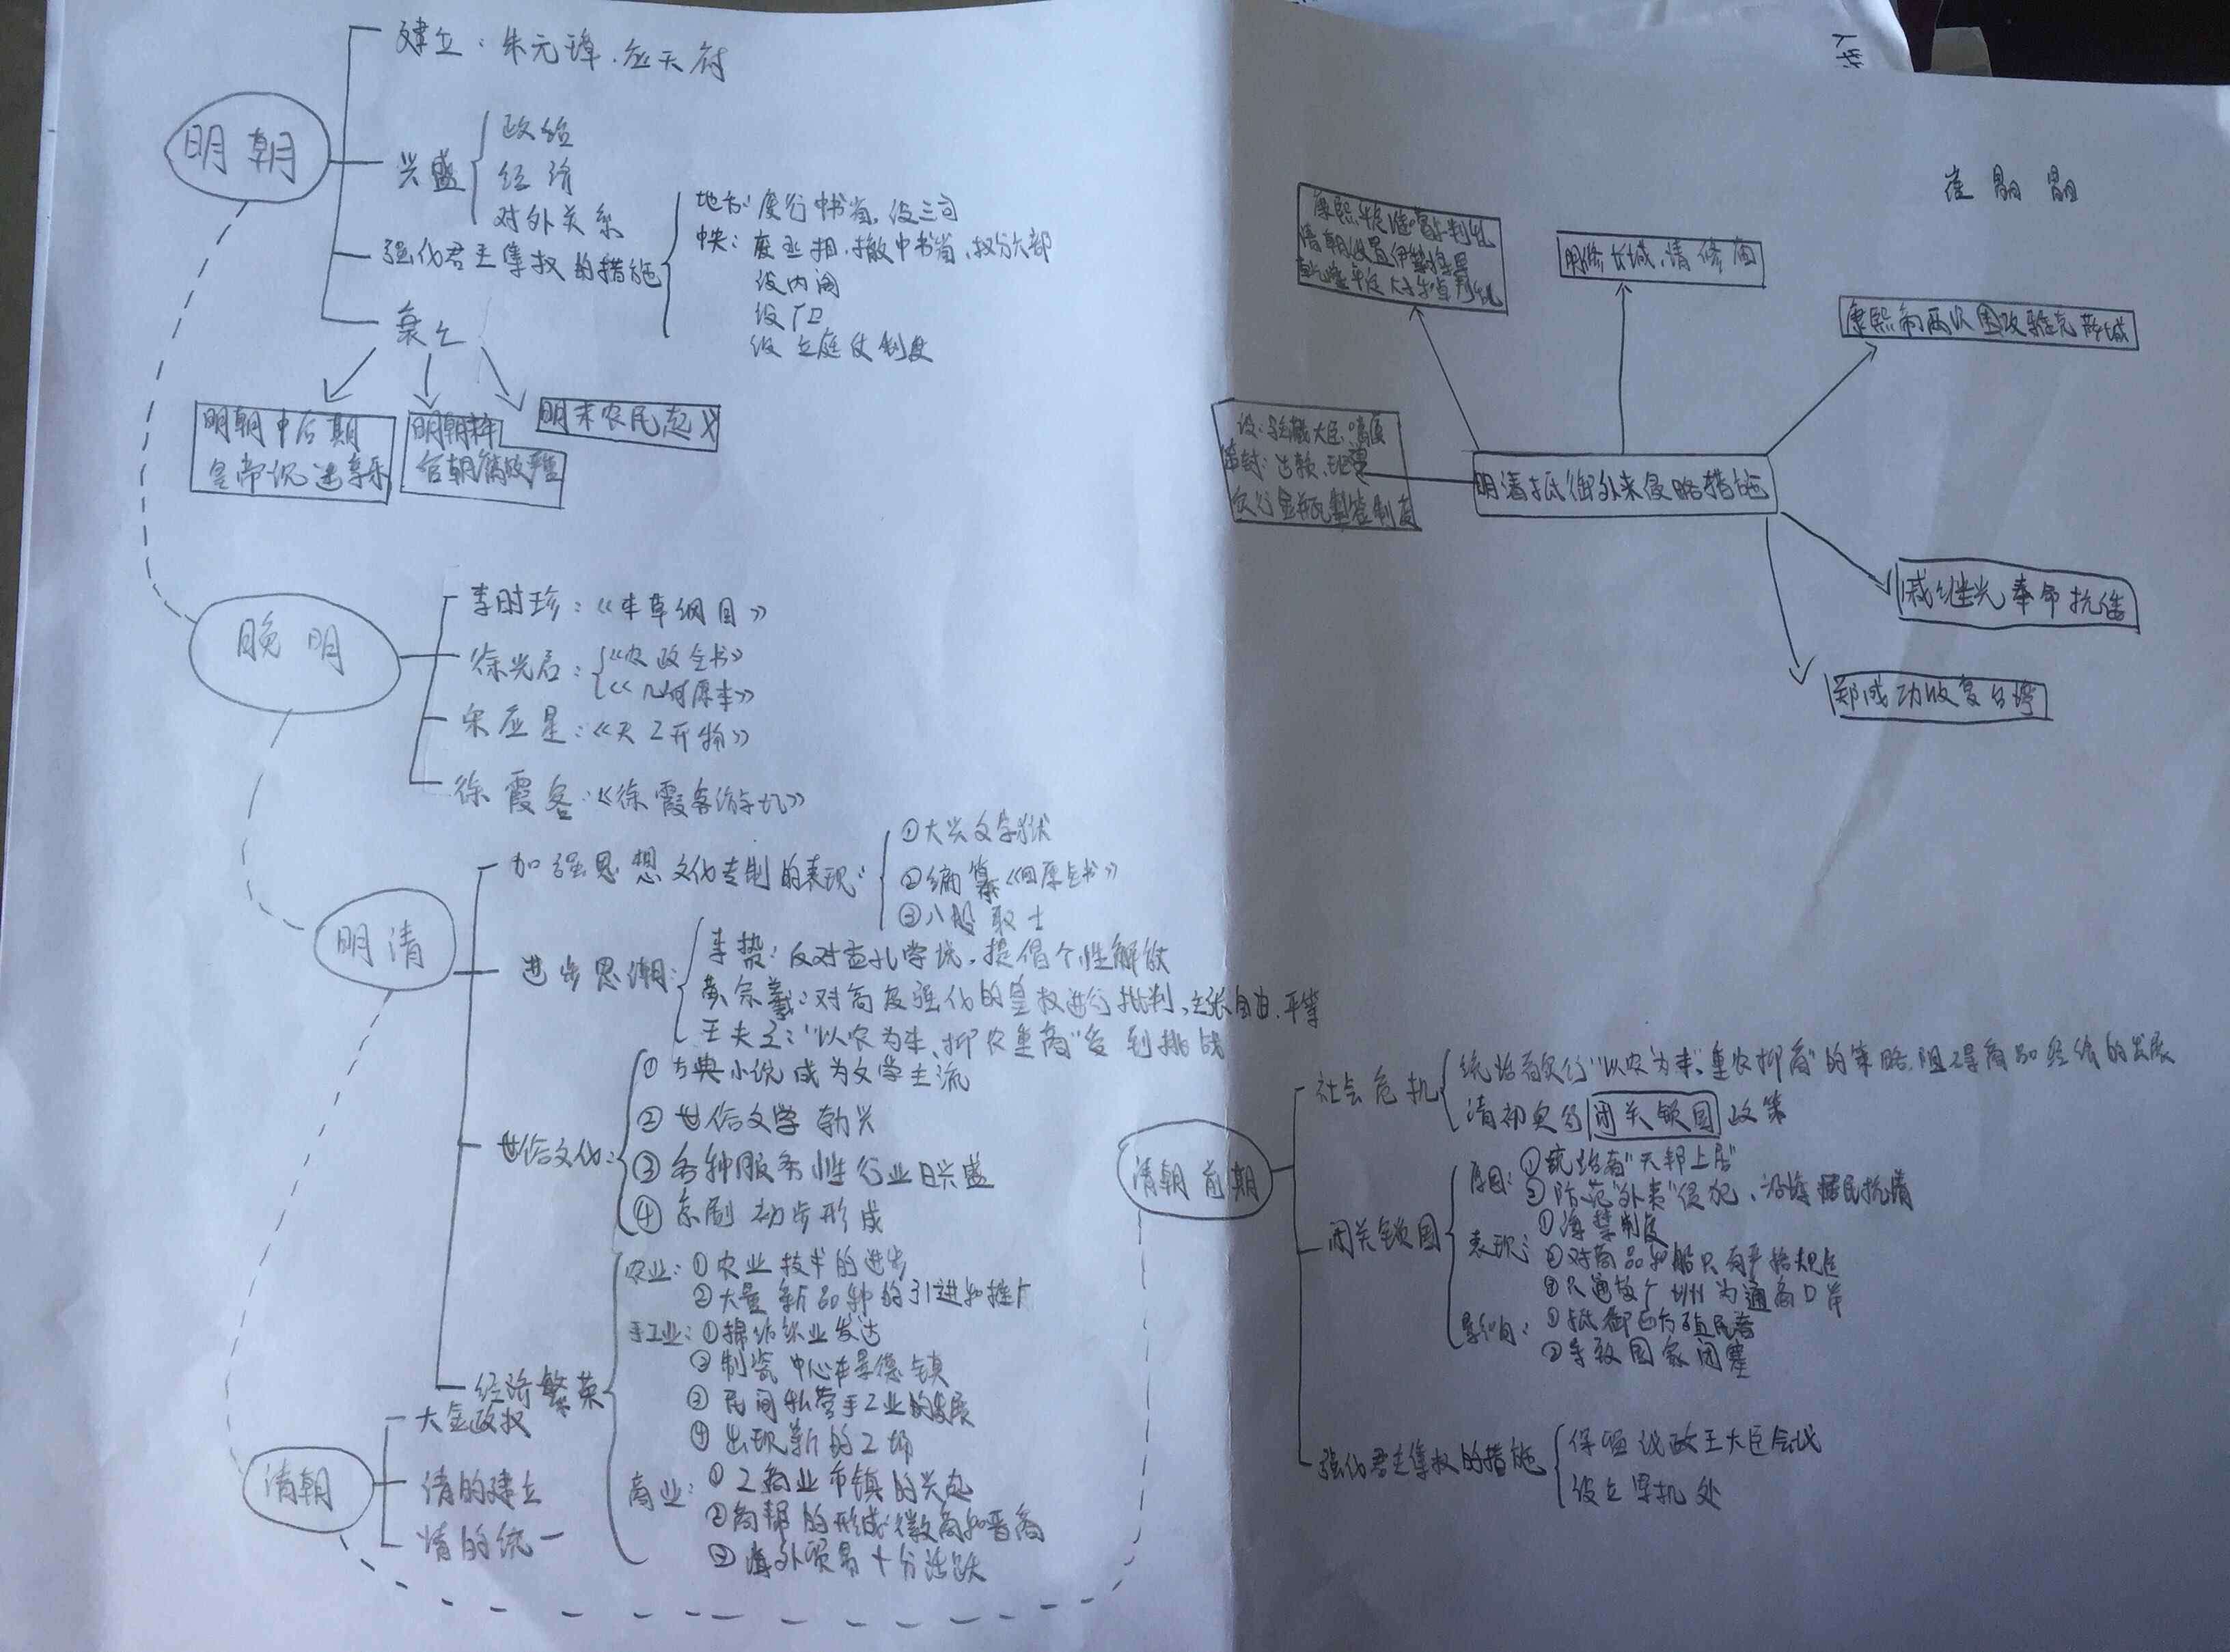 明朝
建立：朱元璋.应天府
兴盛
政治
经济
对外关系
强化君主集权的措施
地方：废行中书省，设三司
中央：废丞相，撤中书省，权分六部
设内阁
设厂卫
设立庭仗制度
衰亡
明朝中后期
皇帝沉迷享乐
明朝
腐败严重
明末农民起义
晚明
李时珍：《本草纲目》
徐光启：
《农政全书》
《几何原本》
宋应星：《天工开物》
徐霞客：《徐霞客游记》
明清
加强思想文化专制的表现：
①大兴文字狱
②编纂《四库全书》
③八股取士
进步思潮：
李贽：反对孟孔学说，提倡个性解放
黄宗羲：对高度强化的皇权进行批判，主张自由.平等
王夫之："以农为本、抑农重商"受到挑战
世俗文化：
①古典小说成为文学主流
②世俗文学勃兴
③各种服务性行业日兴盛
④京剧初步形成
经济繁荣
农业：①农业技术的进步
②大量新品种的引进和推广
手工业：①棉纺织业发达
②制瓷中心在景德镇
③民间私营手工业的发展
④出现新的工场
商业：①工商业市镇的兴起
②商帮的形成：徽商和晋商
③海外贸易十分活跃
清朝
大金政权
清的建立
清的统一
崔朋朋
明清抵御外来侵略措施
康熙平定准噶尔判乱
清朝设置伊犁将军
平定大小和卓判乱
明修长城，清修庙
康熙帝两次围攻雅克萨城
设：驻藏大臣
册封：达赖、班禅
实行金瓶掣签制度
戚继光奉命抗倭
郑成功收复台湾
清朝前期
社会危机
统治者实行"以农为本、重农抑商"的策略，阻碍商品经济的发展
清初实行闭关锁国政策
闭关锁国
原因：①统治者"天邦上居"
②防范"外来"侵犯、沿海居民抗清
表现：①海禁制度
②对商品和船只有严格规定
③只通放广州为通商口岸
影响：①抵御西方殖民者
②导致国家闭塞
强化君主集权的措施
保留议政王大臣会议
设立军机处